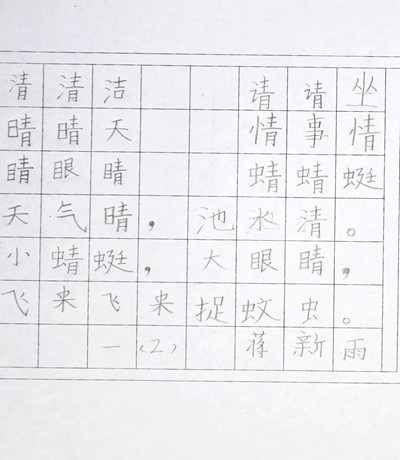 清清洁 请请坐
晴晴天 情事情
睛眼睛 蜻蜻蜓
天气晴，池水清。
小蜻蜓，大眼睛，
飞来飞来捉蚊虫。
一(2) 蒋新雨